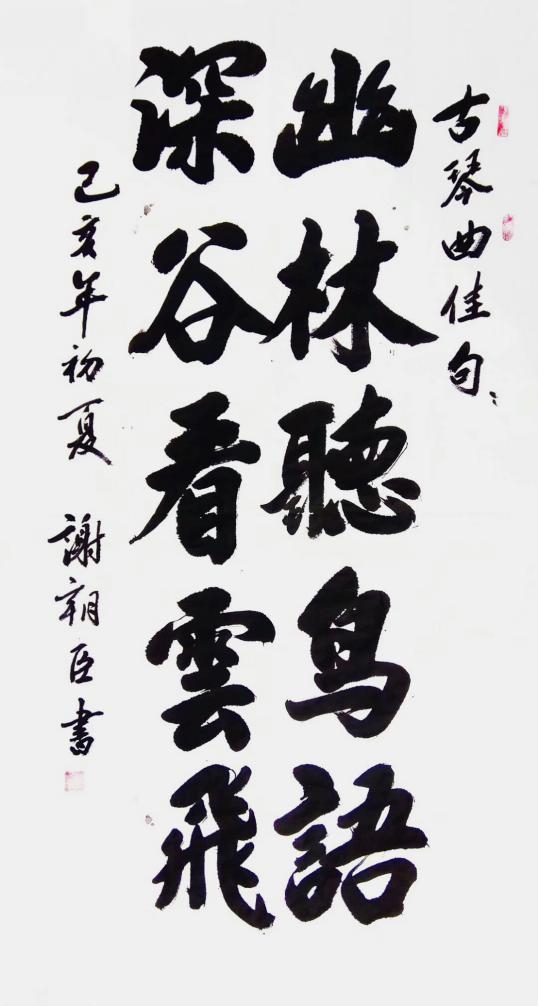 古琴曲佳句：
幽林聽鳥語
深谷看雲飛
己亥年初夏 謝朝臣書